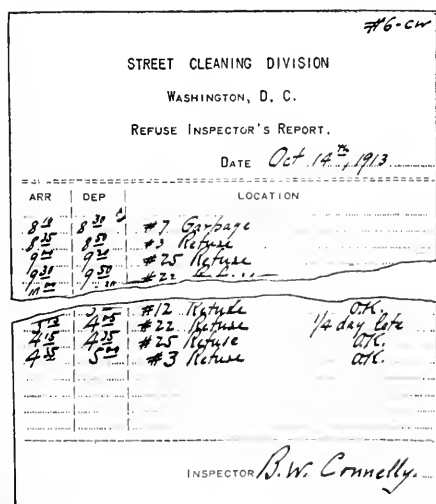 #6-CW
STREET CLEANING DIVISION
WASHINGTON, D. C.
REFUSE INSPECTOR'S REPORT.
DATE Oct 14th, 1913
ARR DEP LOCATION
8 10 8 30 #7 Garbage
8 35 8 50 #3 Refuse
9 00 9 20 #25 Refuse
9 30 9 50 #22
#12 Refuse O.K.
4 05 #22 Refuse 1/4 day late
4 15 4 35 #25 Refuse O.K.
4 35 5 00 #3 Refuse O.K.
INSPECTOR B.W. Connelly.